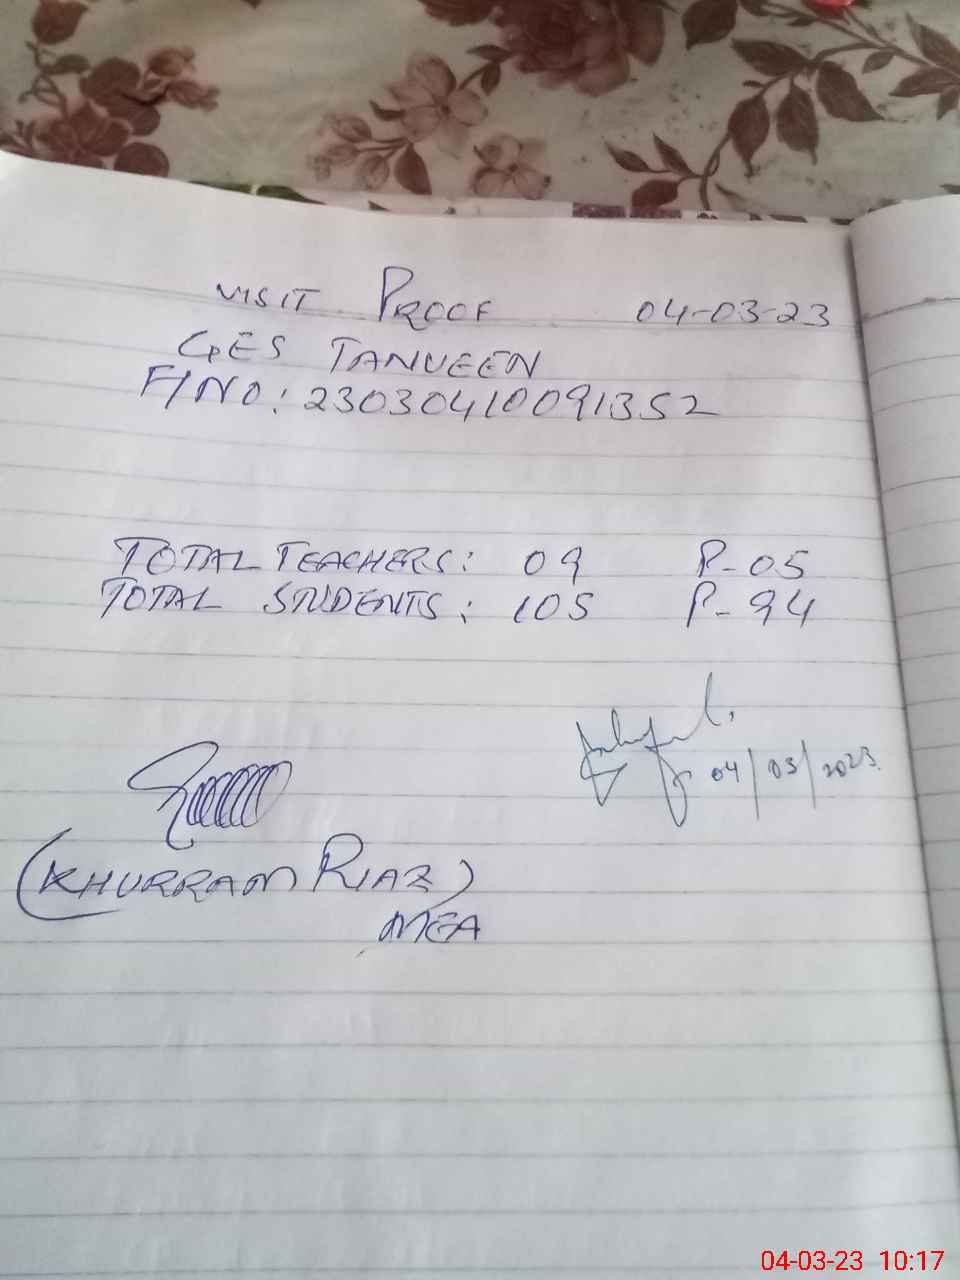 VISIT PROOF 04-03-23
GES TANVEEN
F/NO: 23030410091352
TOTAL TEACHERS: 09 P-05
TOTAL STUDENTS: 105 P-94
04/03/2023
(KHURRAM RIAZ)
MEA
04-03-23 10:17